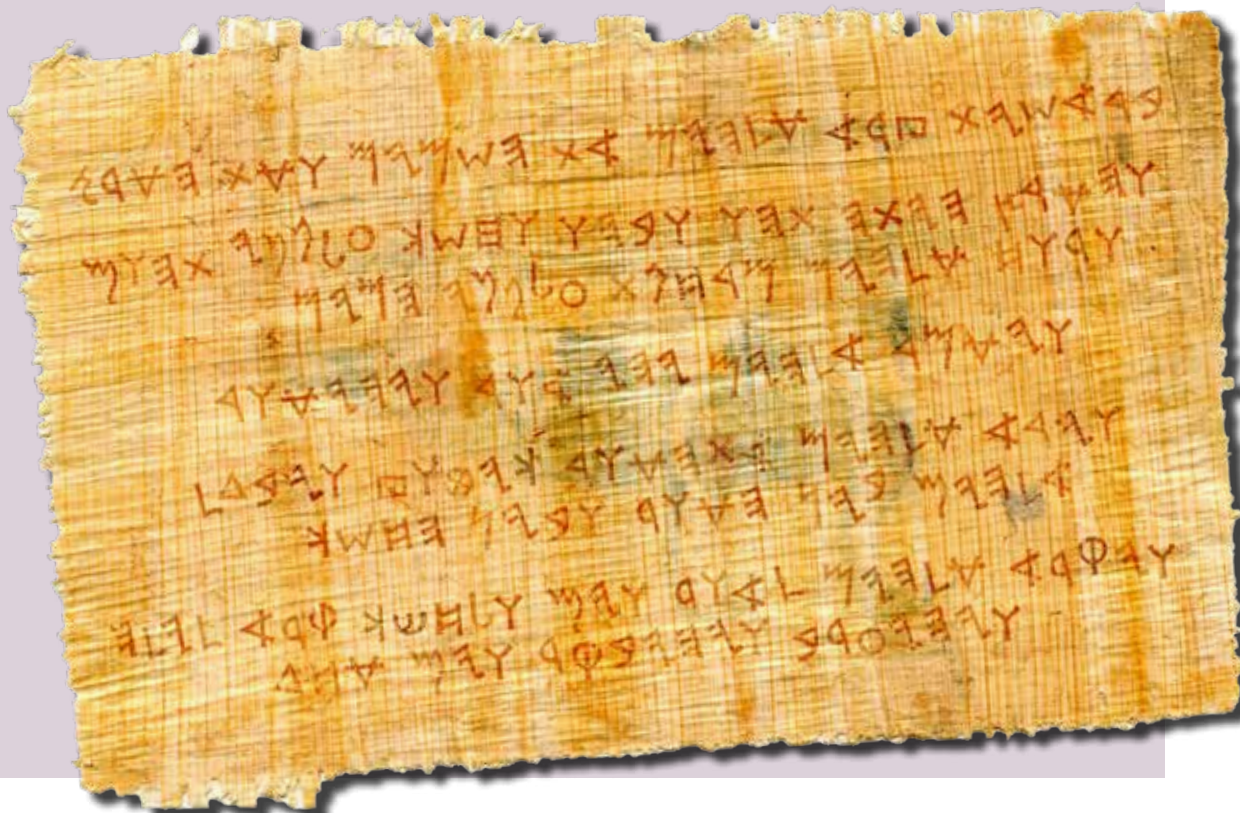 𐤁𐤓𐤀𐤔𐤉𐤕 𐤁𐤓𐤀 𐤀𐤋𐤄𐤉𐤌 𐤀𐤕 𐤄𐤔𐤌𐤉𐤌 𐤅𐤀𐤕 𐤄𐤀𐤓𐤑
𐤅𐤄𐤀𐤓𐤑 𐤄𐤉𐤕𐤄 𐤕𐤄𐤅 𐤅𐤁𐤄𐤅 𐤅𐤇𐤔𐤊 𐤏𐤋 𐤐𐤍𐤉 𐤕𐤄𐤅𐤌
𐤅𐤓𐤅𐤇 𐤀𐤋𐤄𐤉𐤌 𐤌𐤓𐤇𐤐𐤕 𐤏𐤋 𐤐𐤍𐤉 𐤄𐤌𐤉𐤌
𐤅𐤉𐤀𐤌𐤓 𐤀𐤋𐤄𐤉𐤌 𐤉𐤄𐤉 𐤀𐤅𐤓 𐤅𐤉𐤄𐤉 𐤀𐤅𐤓
𐤅𐤉𐤓𐤀 𐤀𐤋𐤄𐤉𐤌 𐤀𐤕 𐤄𐤀𐤅𐤓 𐤊𐤉 𐤈𐤅𐤁 𐤅𐤉𐤁𐤃𐤋
𐤀𐤋𐤄𐤉𐤌 𐤁𐤉𐤍 𐤄𐤀𐤅𐤓 𐤅𐤁𐤉𐤍 𐤄𐤇𐤔𐤊
𐤅𐤉𐤒𐤓𐤀 𐤀𐤋𐤄𐤉𐤌 𐤋𐤀𐤅𐤓 𐤉𐤅𐤌 𐤅𐤋𐤇𐤔𐤊 𐤒𐤓𐤀 𐤋𐤉𐤋𐤄
𐤅𐤉𐤄𐤉 𐤏𐤓𐤁 𐤅𐤉𐤄𐤉 𐤁𐤒𐤓 𐤉𐤅𐤌 𐤀𐤇𐤃